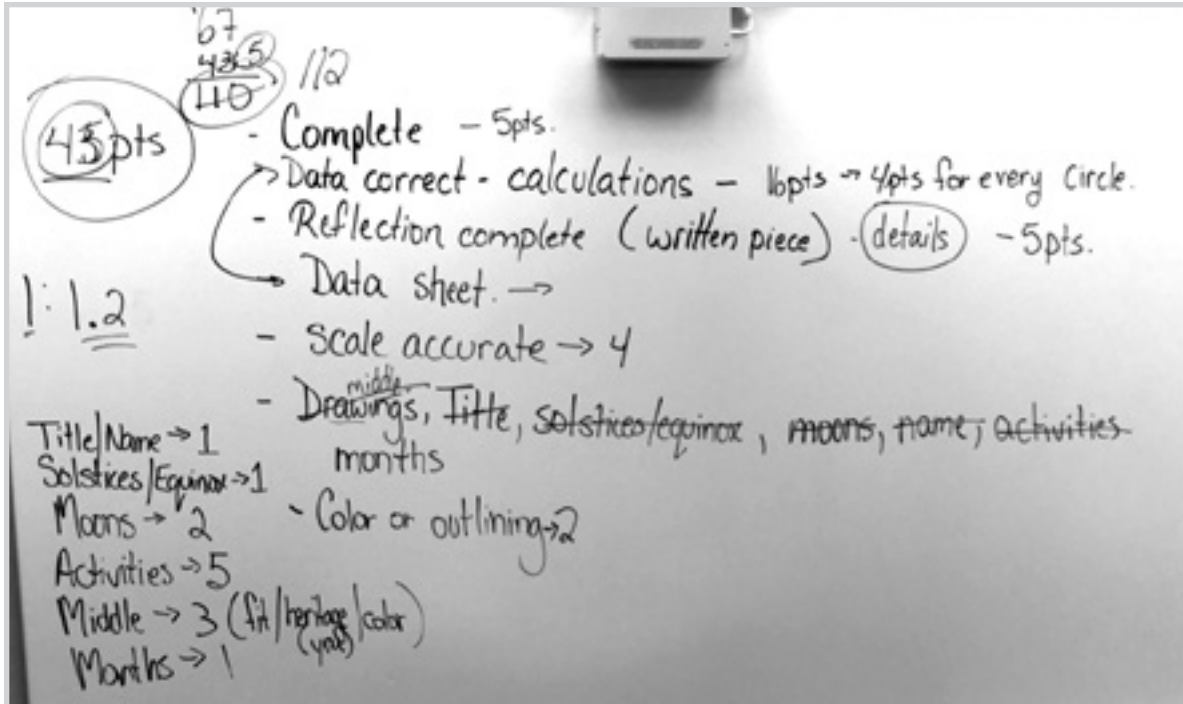 67
43 5
110
112
45pts
- Complete - 5pts.
> Data correct - calculations - 16pts → 4pts for every Circle.
- Reflection complete (written piece) - details - 5pts.
Data sheet. →
1: 1.2
- Scale accurate → 4
middle
- Drawings, Title, solstices/equinox, moons, name, activities
months
- Color or outlining → 2
Title/Name → 1
Solstices/Equinox → 1
Moons → 2
Activities → 5
Middle → 3 (fit/heritage/color)
Months → 1